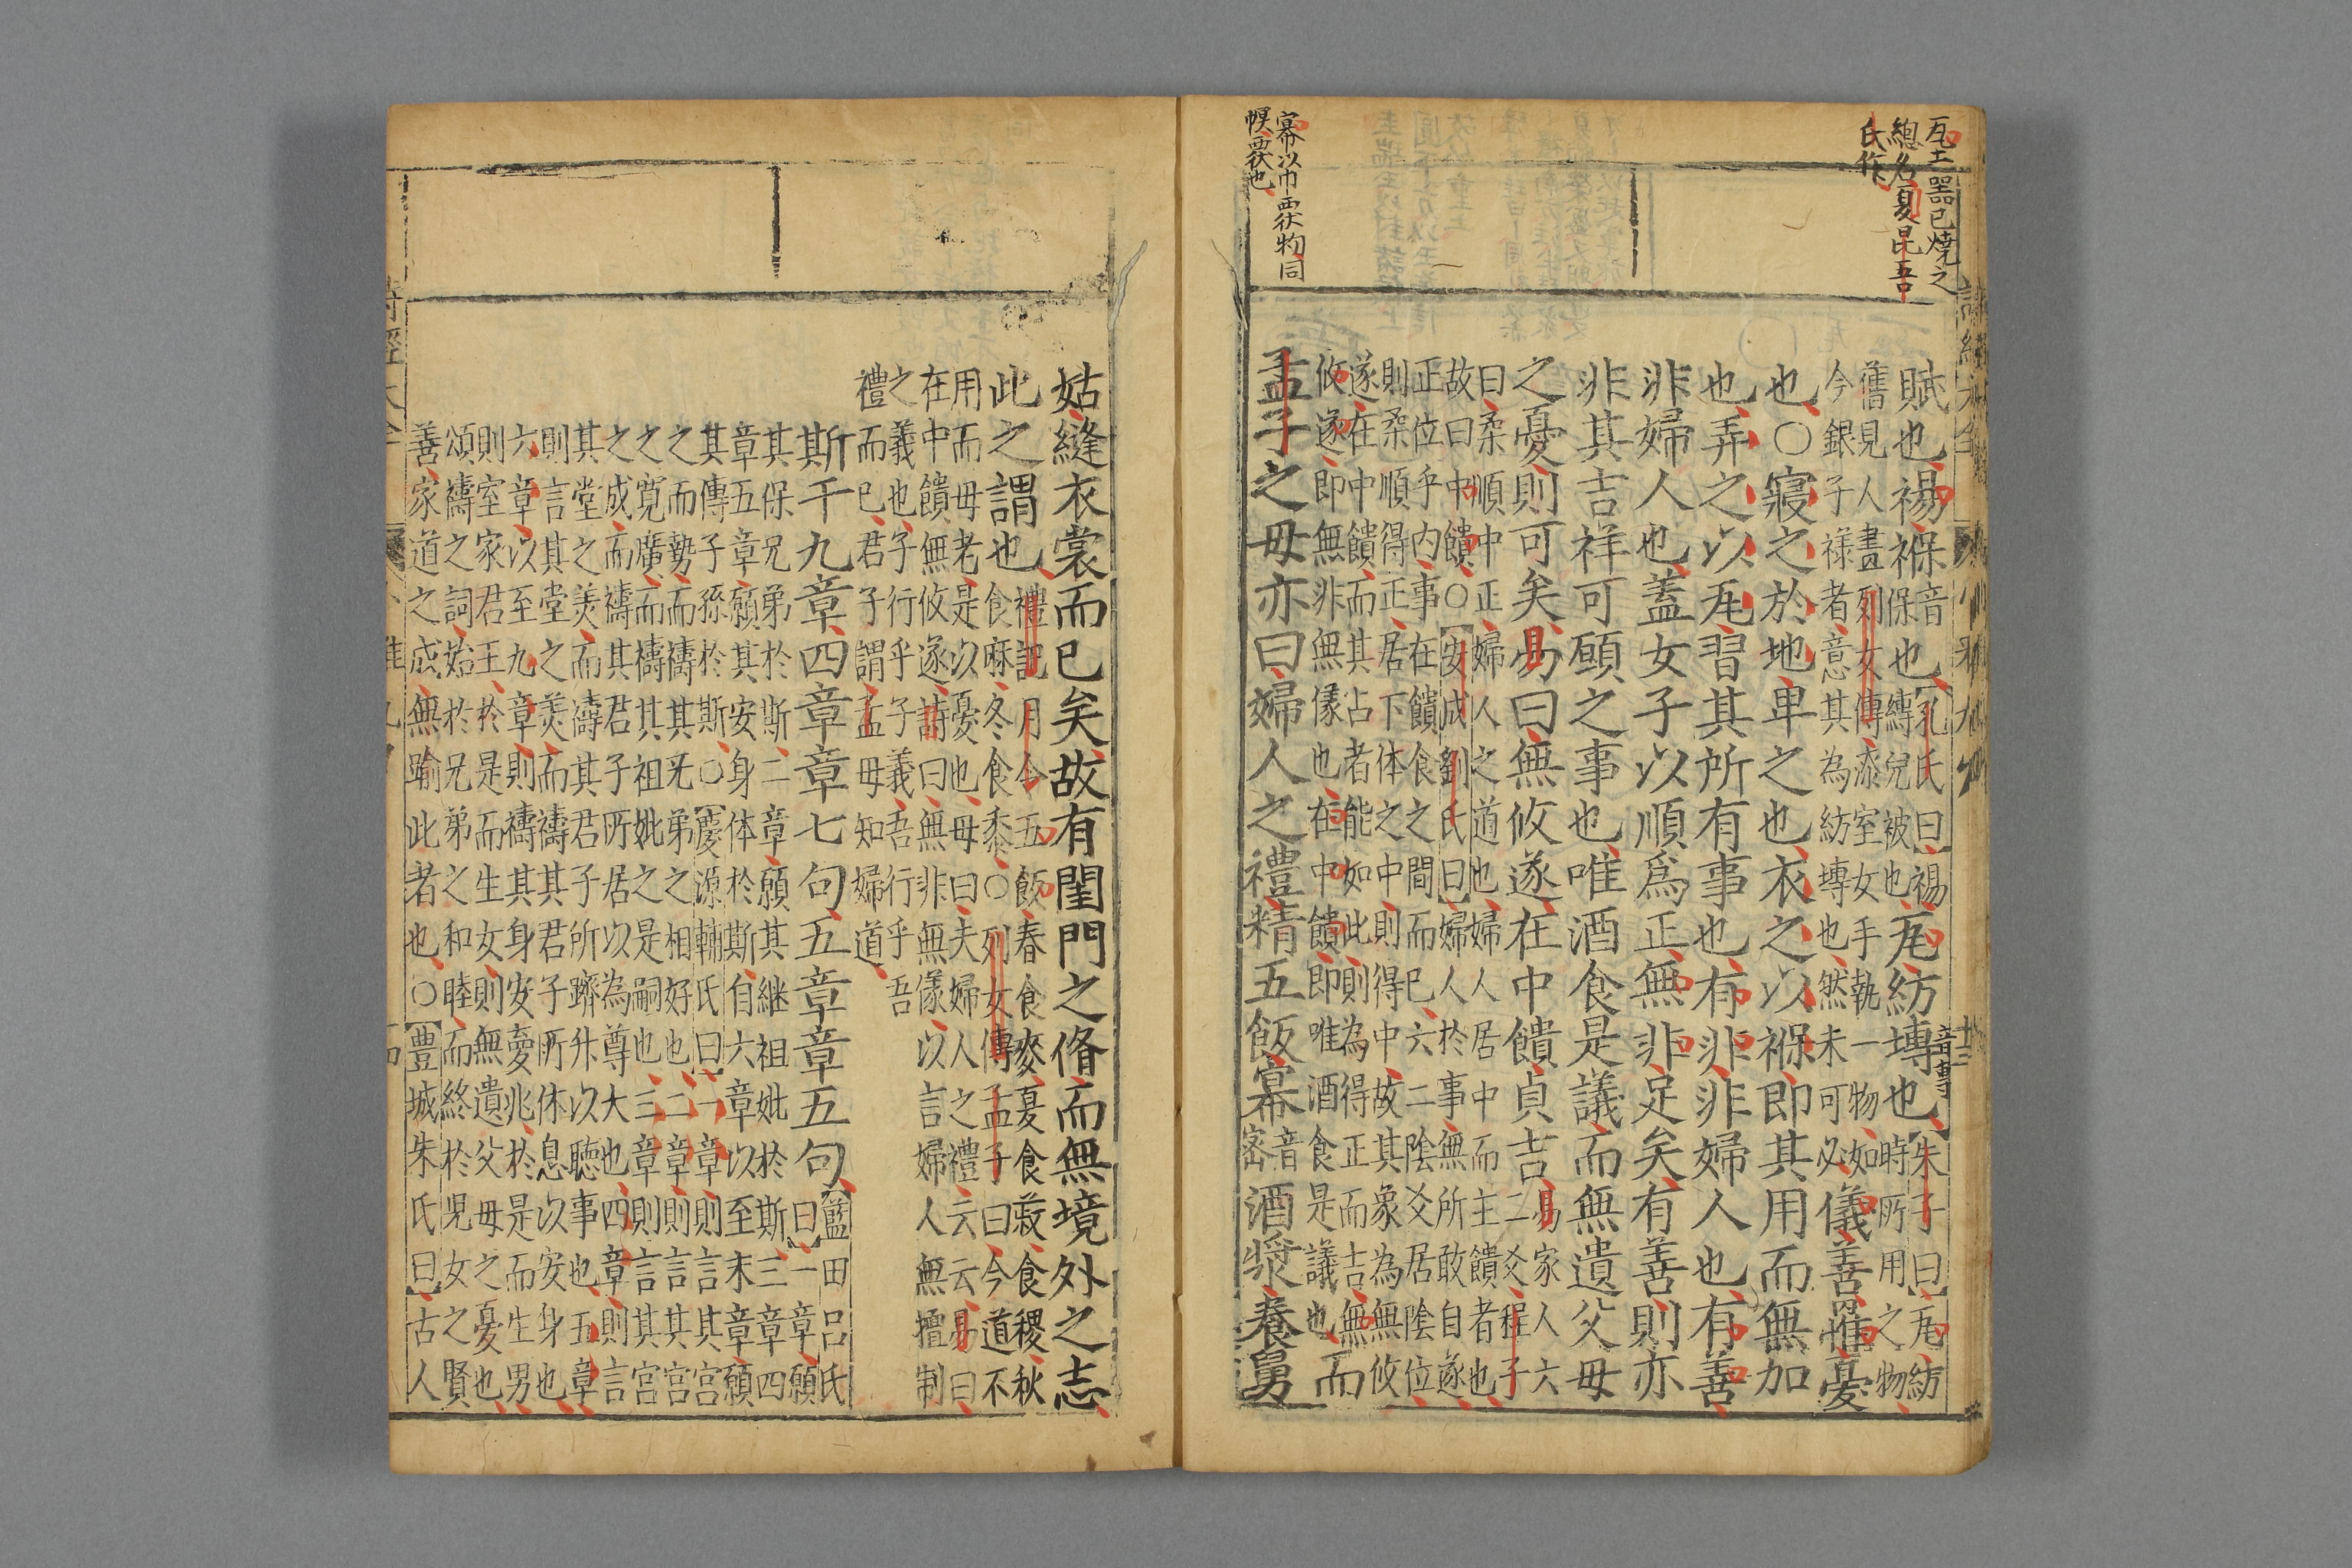 瓦土器已燒之
總名夏昆吾
氏作
賦也裼褓音保也孔氏曰裼
縛兒被也瓦紡塼音專也朱子曰瓦紡
時所用之物
舊見人畫列女傳漆室女手執一物如
今銀子樣者意其為紡塼也然未可必儀善罹憂
也○寢之於地卑之也衣之以褓即其用而無加
也弄之以瓦習其所有事也有非非婦人也有善
非婦人也蓋女子以順爲正無非足矣有善則亦
非其吉祥可願之事也唯酒食是議而無遺父母
之憂則可矣易曰無攸遂在中饋貞吉易家人六
二爻程子
曰柔順中正婦人之道也婦人居中而主饋者也
故曰中饋○安成劉氏曰婦人於事無所敢自遂
正位乎内事在饋食之間而已六二陰爻居陰位
則柔順得正居下体之中則得中故其象為無攸
遂在中饋而其占者能如此則為得正而吉無
攸遂即無非無儀也在中饋即唯酒食是議也而
孟子之母亦曰婦人之禮精五飯冪音密酒漿養舅
冪以巾覆物同
幎覆也
姑縫衣裳而已矣故有閨門之脩而無境外之志
此之謂也禮記月令五飯春食麥夏食菽食稷秋
食麻冬食黍○列女傳孟子曰今道不
用而母老是以憂也母曰夫婦人之禮云云易曰
在中饋無攸遂詩曰無非無儀以言婦人無擅制
之義也子行乎子義吾行乎吾
禮而已君子謂孟母知婦道
斯干九章四章章七句五章章五句藍田呂氏
曰一章願
其保兄弟於斯二章願其継祖妣於斯三章四
章五章願其安身体於斯自六章以至末章願
其傳子孫於斯○慶源輔氏曰一章則言其宮
之而勢而禱其兄弟之相好也二章則言其宮
之寛廣而禱其祖妣之是嗣也三章則言其宮
之成而禱其君子所居以為尊大也四章則言
其堂之美而禱其君子所躋升以聽事也五章
則言其堂之美而禱其君子所休息以安身也
六章以至九章則禱其身安夢兆於是而生男
則室家君王於是而生女則無遺父母之憂也
頌禱之詞始於兄弟之和睦而終於児女之賢
善家道之成無踰此者也○豊城朱氏曰古人